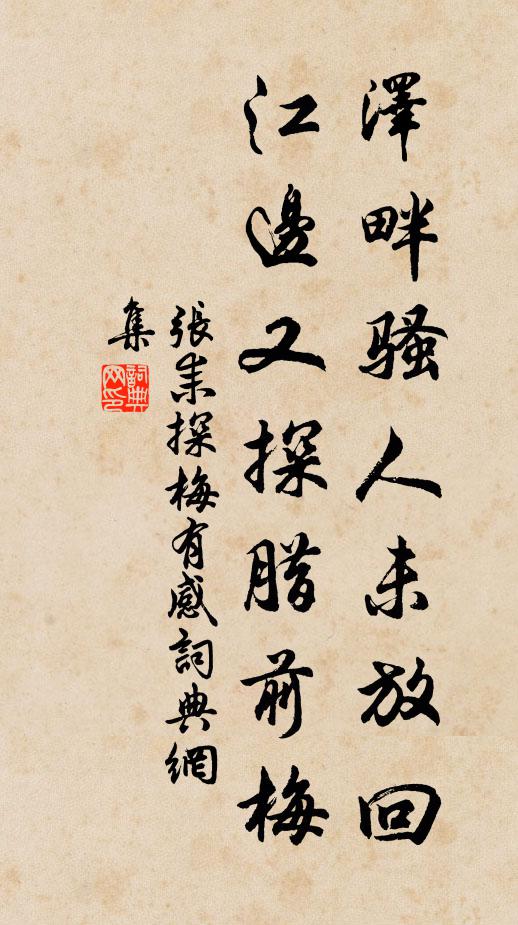 澤畔騷人未放回
江邊又探腊前梅
張耒探梅有感詞典網
集
詞典
网印